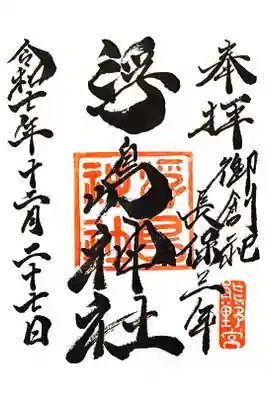 奉拝
御創祀
長保三年
熊野宮
浮嶋神社
令和七年十二月二十七日